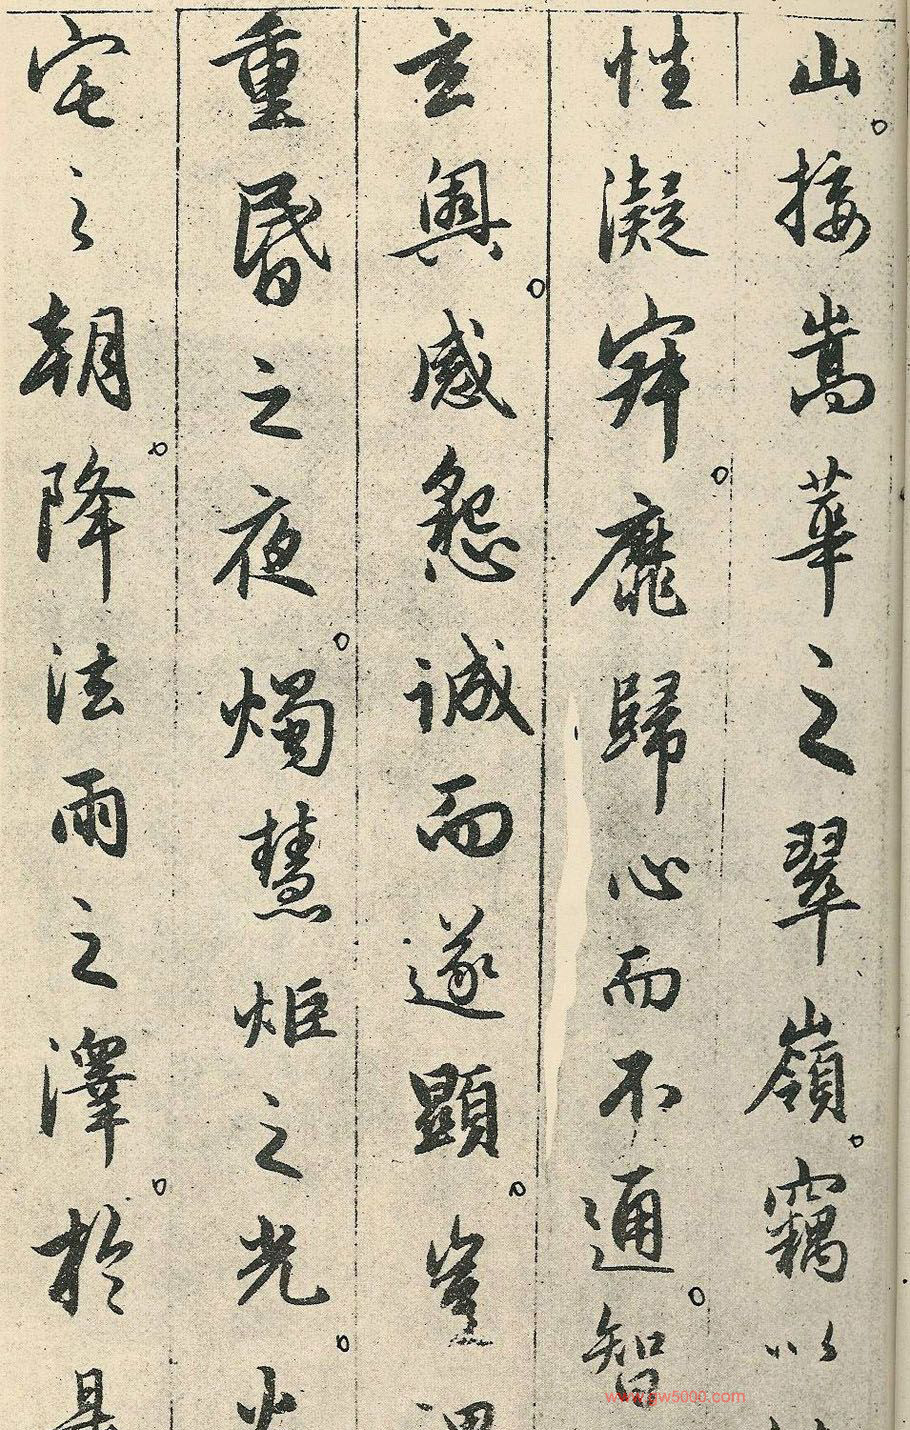 山接嵩華之翠嶺竊以
性凝寂靡歸心而不通智
玄奧感懇誠而遂顯豈謂
重昏之夜燭慧炬之光火
宅之朝降法雨之澤於是
www.gw5000.com